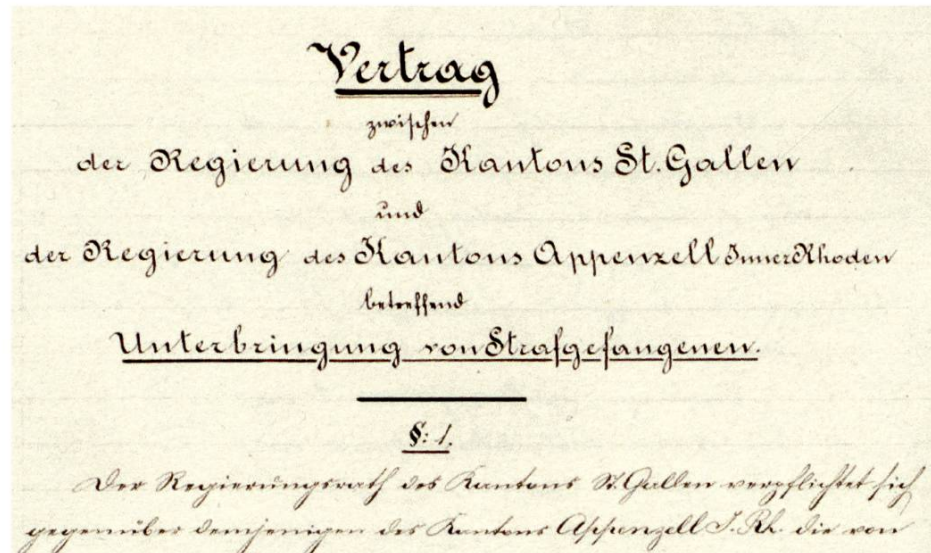 Vertrag
zwischen
der Regierung des Kantons St. Gallen
und
der Regierung des Kantons Appenzell InnerRhoden
betreffend
Unterbringung von Strafgefangenen.
§: 1.
Der Regierungsrath des Kantons St. Gallen verpflichtet sich
gegenüber demjenigen des Kantons Appenzell I. Rh. die von